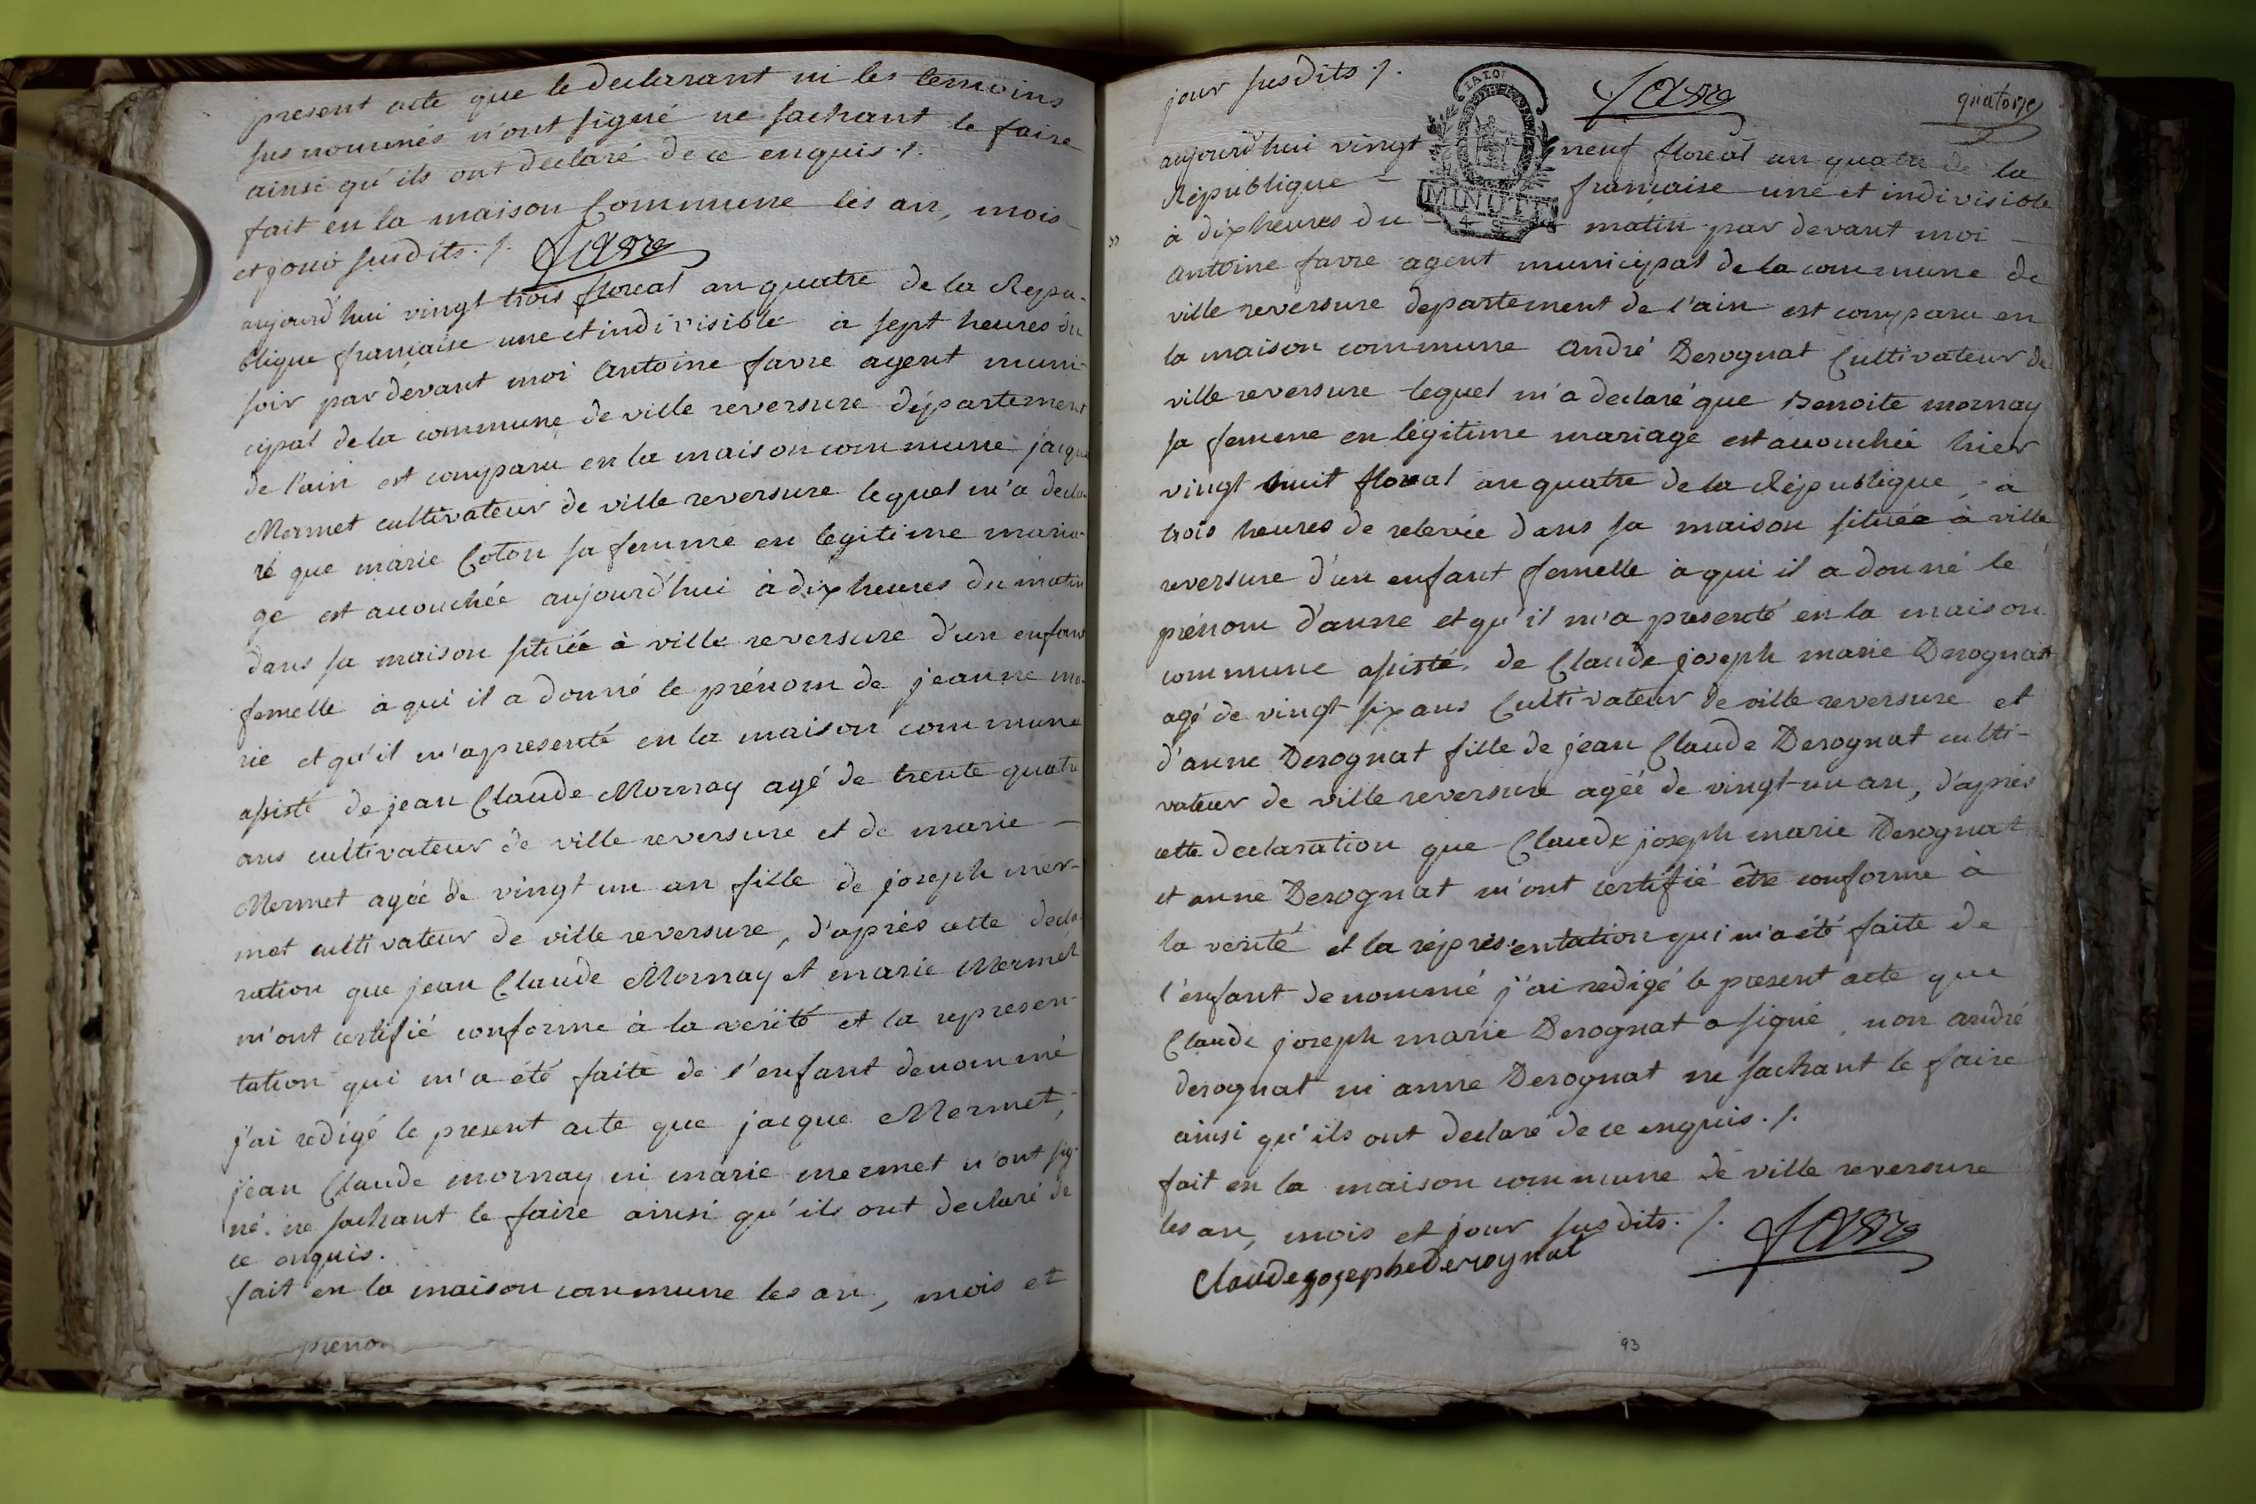 present acte que le declarant ni les temoins
sus nommés n'ont signé ne sachant le faire
ainsi qu'ils ont declaré de ce enquis ./.
fait en la maison Commune les an, mois
et jour susdits ./. favre
aujourd'hui vingt trois floreal an quatre de la Repu-
blique française une et indivisible à sept heures du
soir par devant moi Antoine favre agent muni-
cipal de la commune de ville reversure département
de l'ain est comparu en la maison commune jacque
Mermet cultivateur de ville reversure lequel m'a decla-
ré que marie Coton sa femme en légitime maria-
ge est accouchée aujourd'hui à dix heures du matin
dans sa maison située à ville reversure d'un enfant
femelle à qui il a donné le prénom de jeanne ma-
rie et qu'il m'a presenté en la maison commune
assisté de jean Claude Mornay agé de trente quatre
ans cultivateur de ville reversure et de marie
Mermet agée de vingt un an fille de joseph mer-
met cultivateur de ville reversure, d'après cette decla-
ration que jean Claude Mornay et marie Mermet
m'ont certifié conforme à la verité et la represen-
tation qui m'a été faite de l'enfant denommé
j'ai redigé le present acte que jacque Mermet,
jean Claude mornay ni marie mermet n'ont sig-
né ne sachant le faire ainsi qu'ils ont declaré de
ce enquis.
fait en la maison commune les an, mois et
preno
jour susdits ./. favre
quatorze
LA LOI
MINUTE
aujourd'hui vingt neuf floreal an quatre de la
République - française une et indivisible
à dix heures du matin par devant moi
antoine favre agent municipal de la commune de
ville reversure departement de l'ain est comparu en
la maison commune andré Derognat Cultivateur de
ville reversure lequel m'a declaré que Benoite mornay
sa femme en légitime mariage est accouchée hier
vingt huit floreal an quatre de la République, à
trois heures de relevée dans sa maison située à ville
reversure d'un enfant femelle à qui il a donné le
prénom d'anne et qu'il m'a presenté en la maison
commune assisté de Claude joseph marie Derognat
agé de vingt six ans Cultivateur de ville reversure et
d'anne Derognat fille de jean Claude Derognat culti-
vateur de ville reversure agée de vingt un an, d'après
cette declaration que Claude joseph marie Derognat
et anne Derognat m'ont certifié être conforme à
la verité et la représentation qui m'a été faite de
l'enfant denommé j'ai redigé le present acte que
Claude joseph marie Derognat a signé, non andré
derognat ni anne Derognat ne sachant le faire
ainsi qu'ils ont declaré de ce enquis ./.
fait en la maison commune de ville reversure
les an, mois et jour susdits ./. favre
Claude josephe Derognat
93